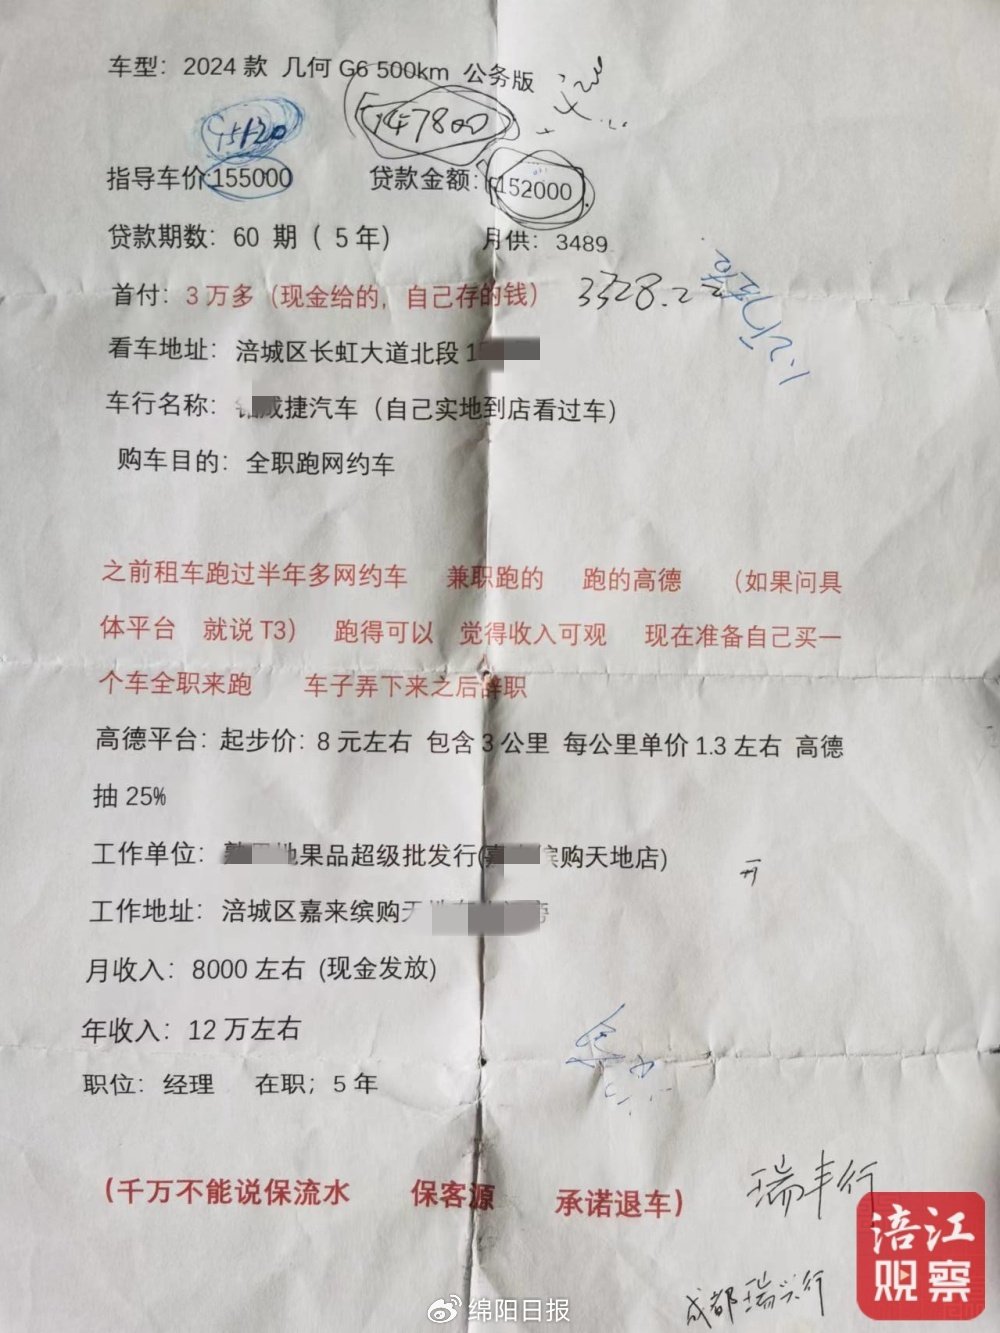 车型：2024款 几何G6 500km 公务版
147800
指导车价:155000 贷款金额：152000
贷款期数：60 期（ 5年） 月供：3489
首付：3万多（现金给的，自己存的钱） 3328.2
看车地址：涪城区长虹大道北段1
车行名称： 捷汽车（自己实地到店看过车）
购车目的：全职跑网约车
之前租车跑过半年多网约车 兼职跑的 跑的高德 （如果问具
体平台 就说T3） 跑得可以 觉得收入可观 现在准备自己买一
个车全职来跑 车子弄下来之后辞职
高德平台：起步价：8元左右 包含3公里 每公里单价1.3左右 高德
抽25%
工作单位： 果品超级批发行( 缤购天地店)
工作地址：涪城区嘉来缤购天
月收入：8000左右 (现金发放)
年收入：12万左右
职位：经理 在职；5年
（千万不能说保流水 保客源 承诺退车）
瑞丰行
成都瑞兴行
涪江
观察
绵阳日报